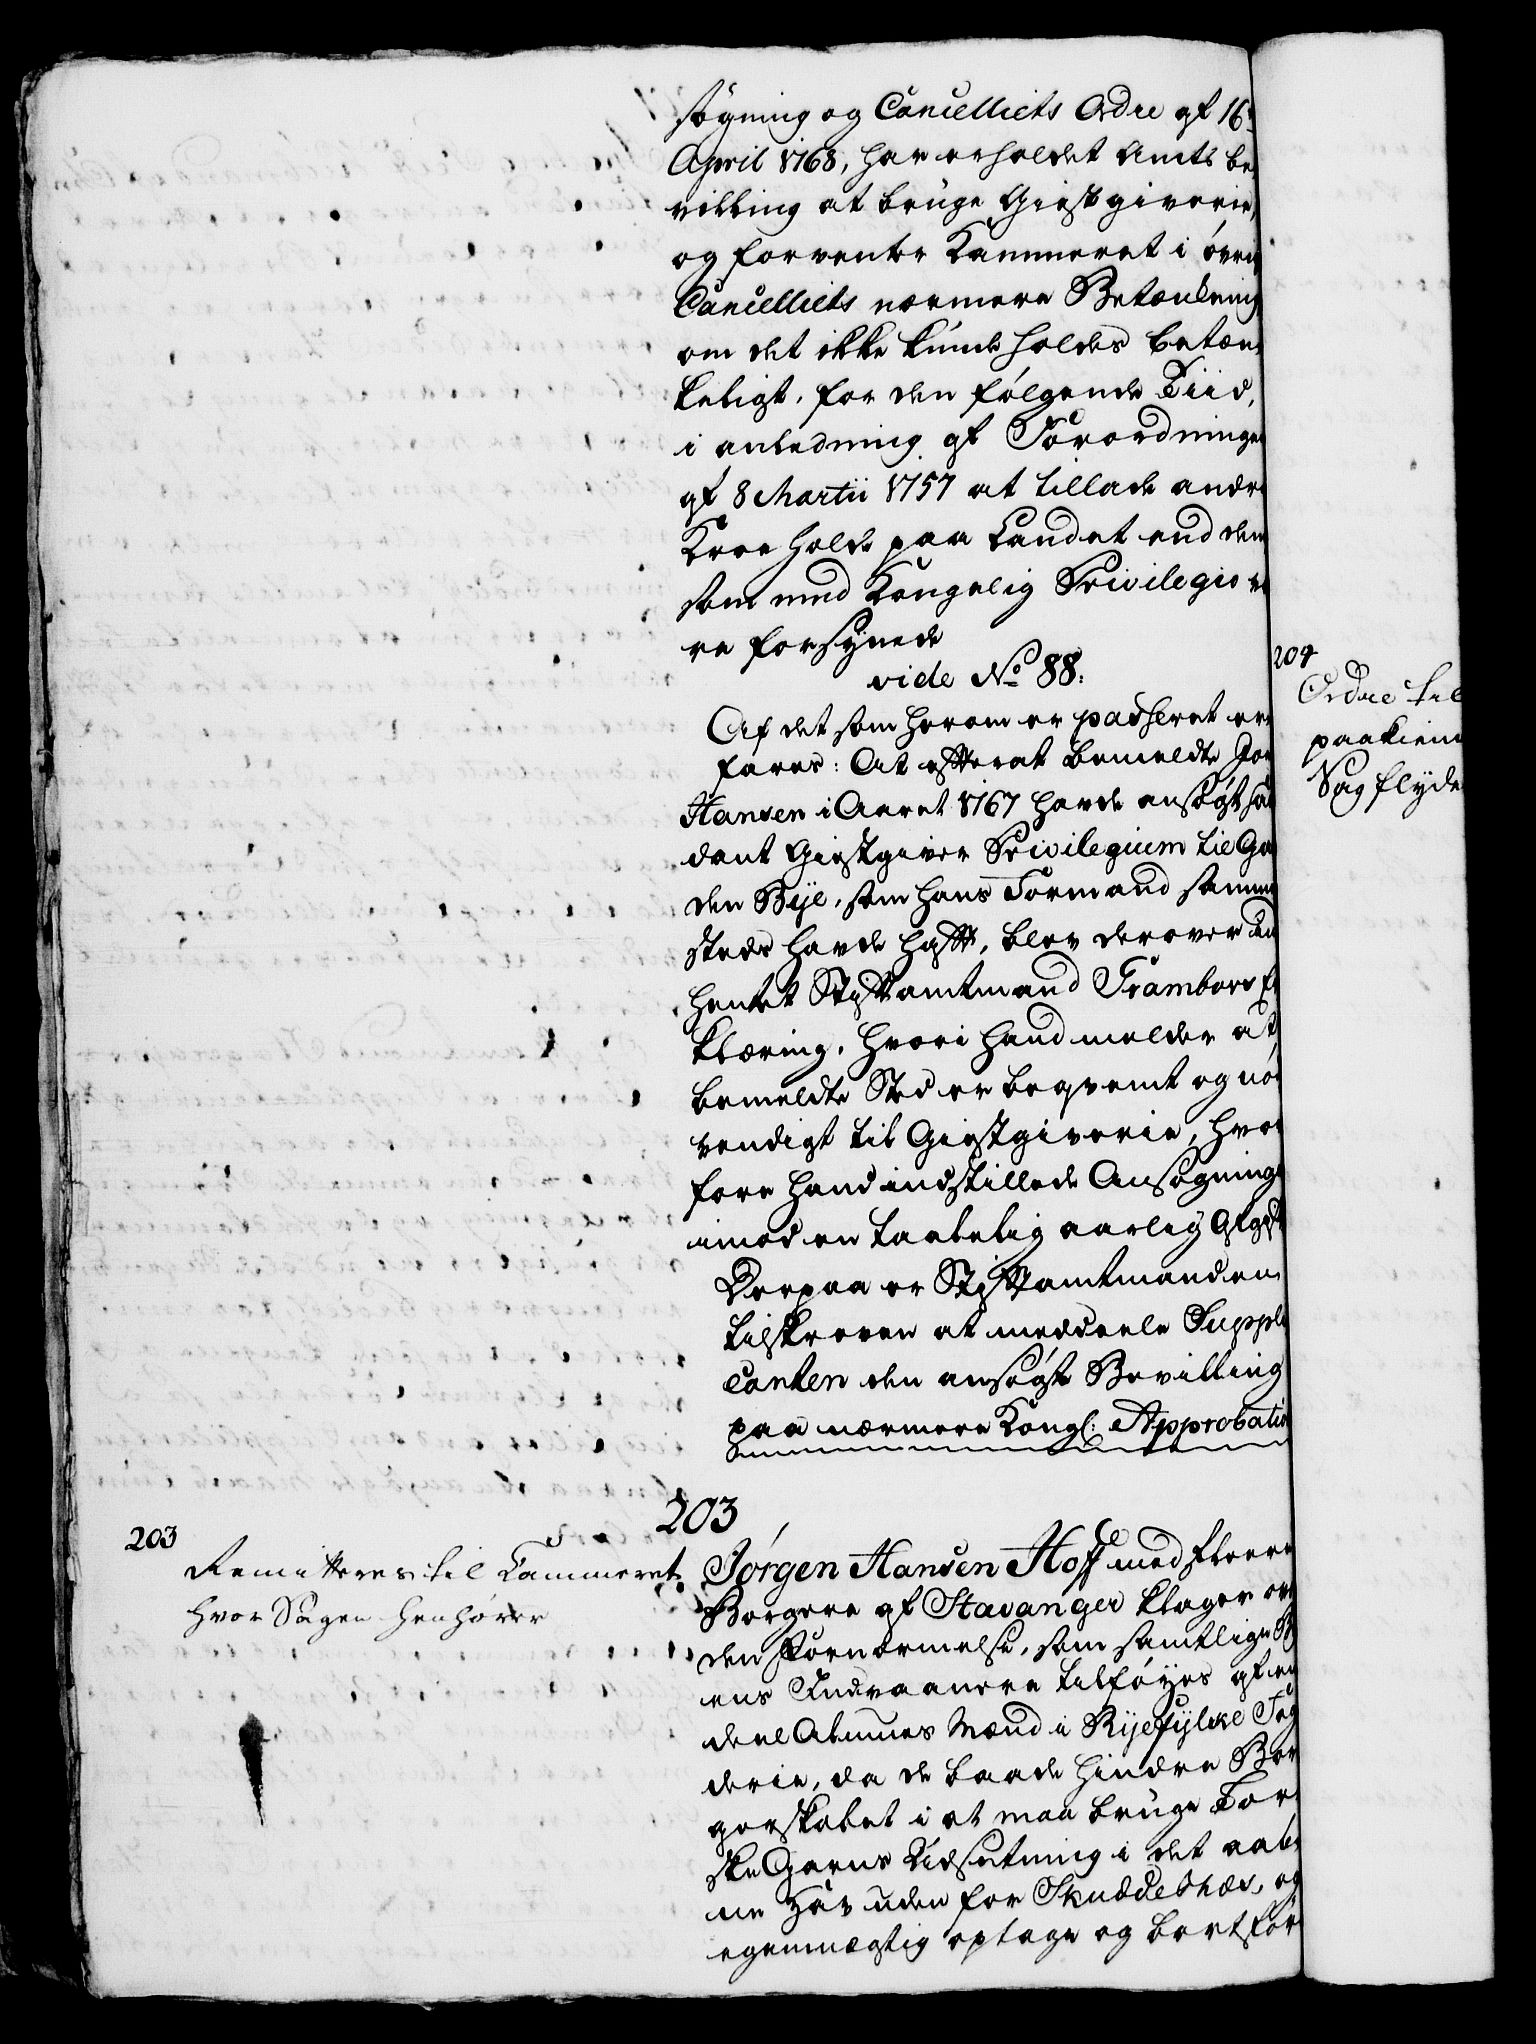 søgning og Cancelliets Ordre af 16de
April 1768, har erholdet Amts be
villing at bruge Giestgiverie,
og forventer Kammeret i øvrig
Cancelliets nærmere Betænkning
om det ikke kunde holdes betæn-
keligt, for den følgende Tiid,
i anledning af Forordningen
af 8 Martii 1757 at tillade andre
Kroe holde paa Landet end dem
som med Kongelig Privilegio ve
re forsynede
vide No 88.
Af det som herom er passeret er-
fares: At efterat bemeldte Jør
Hansen i Aaret 1767 havde ansøgt saa
dant Giestgiver Privilegium til Gaa
den Bye, som hans Formand samme
steds havde haft, blev derover ind
hentet Stiftamtmand Trambors Er
klæring, hvori hand melder at
bemeldte Sted er beqvemt og nød
vendigt til Giestgiverie, hvor
fore hand indstillede Ansøgningen
imod en taalelig aarlig Afgift
Derpaa er Stiftamtmanden
tilskreven at meddeele Suppli
canten den ansøgte Bevilling
paa nærmere Kongl: Approbation
203
203
Remitteres til Kammeret
hvor Sagen henhører
Jørgen Hansen Hoff med fleere
Borgere af Stavanger klager over
den Fornærmelse, som samtlige By
ens Indvaanere tilføyes af en
deel Almues Mænd i Ryefylke Fog
derie, da de baade hindre Bor
gerskabet i at maa bruge Tor-
ske Garns Udsetning i det aab-
ne Hav uden for Skuddesnæs, og
egenmægtig optage og bortfør
204
Ordre til
paakiend
Sag flyde